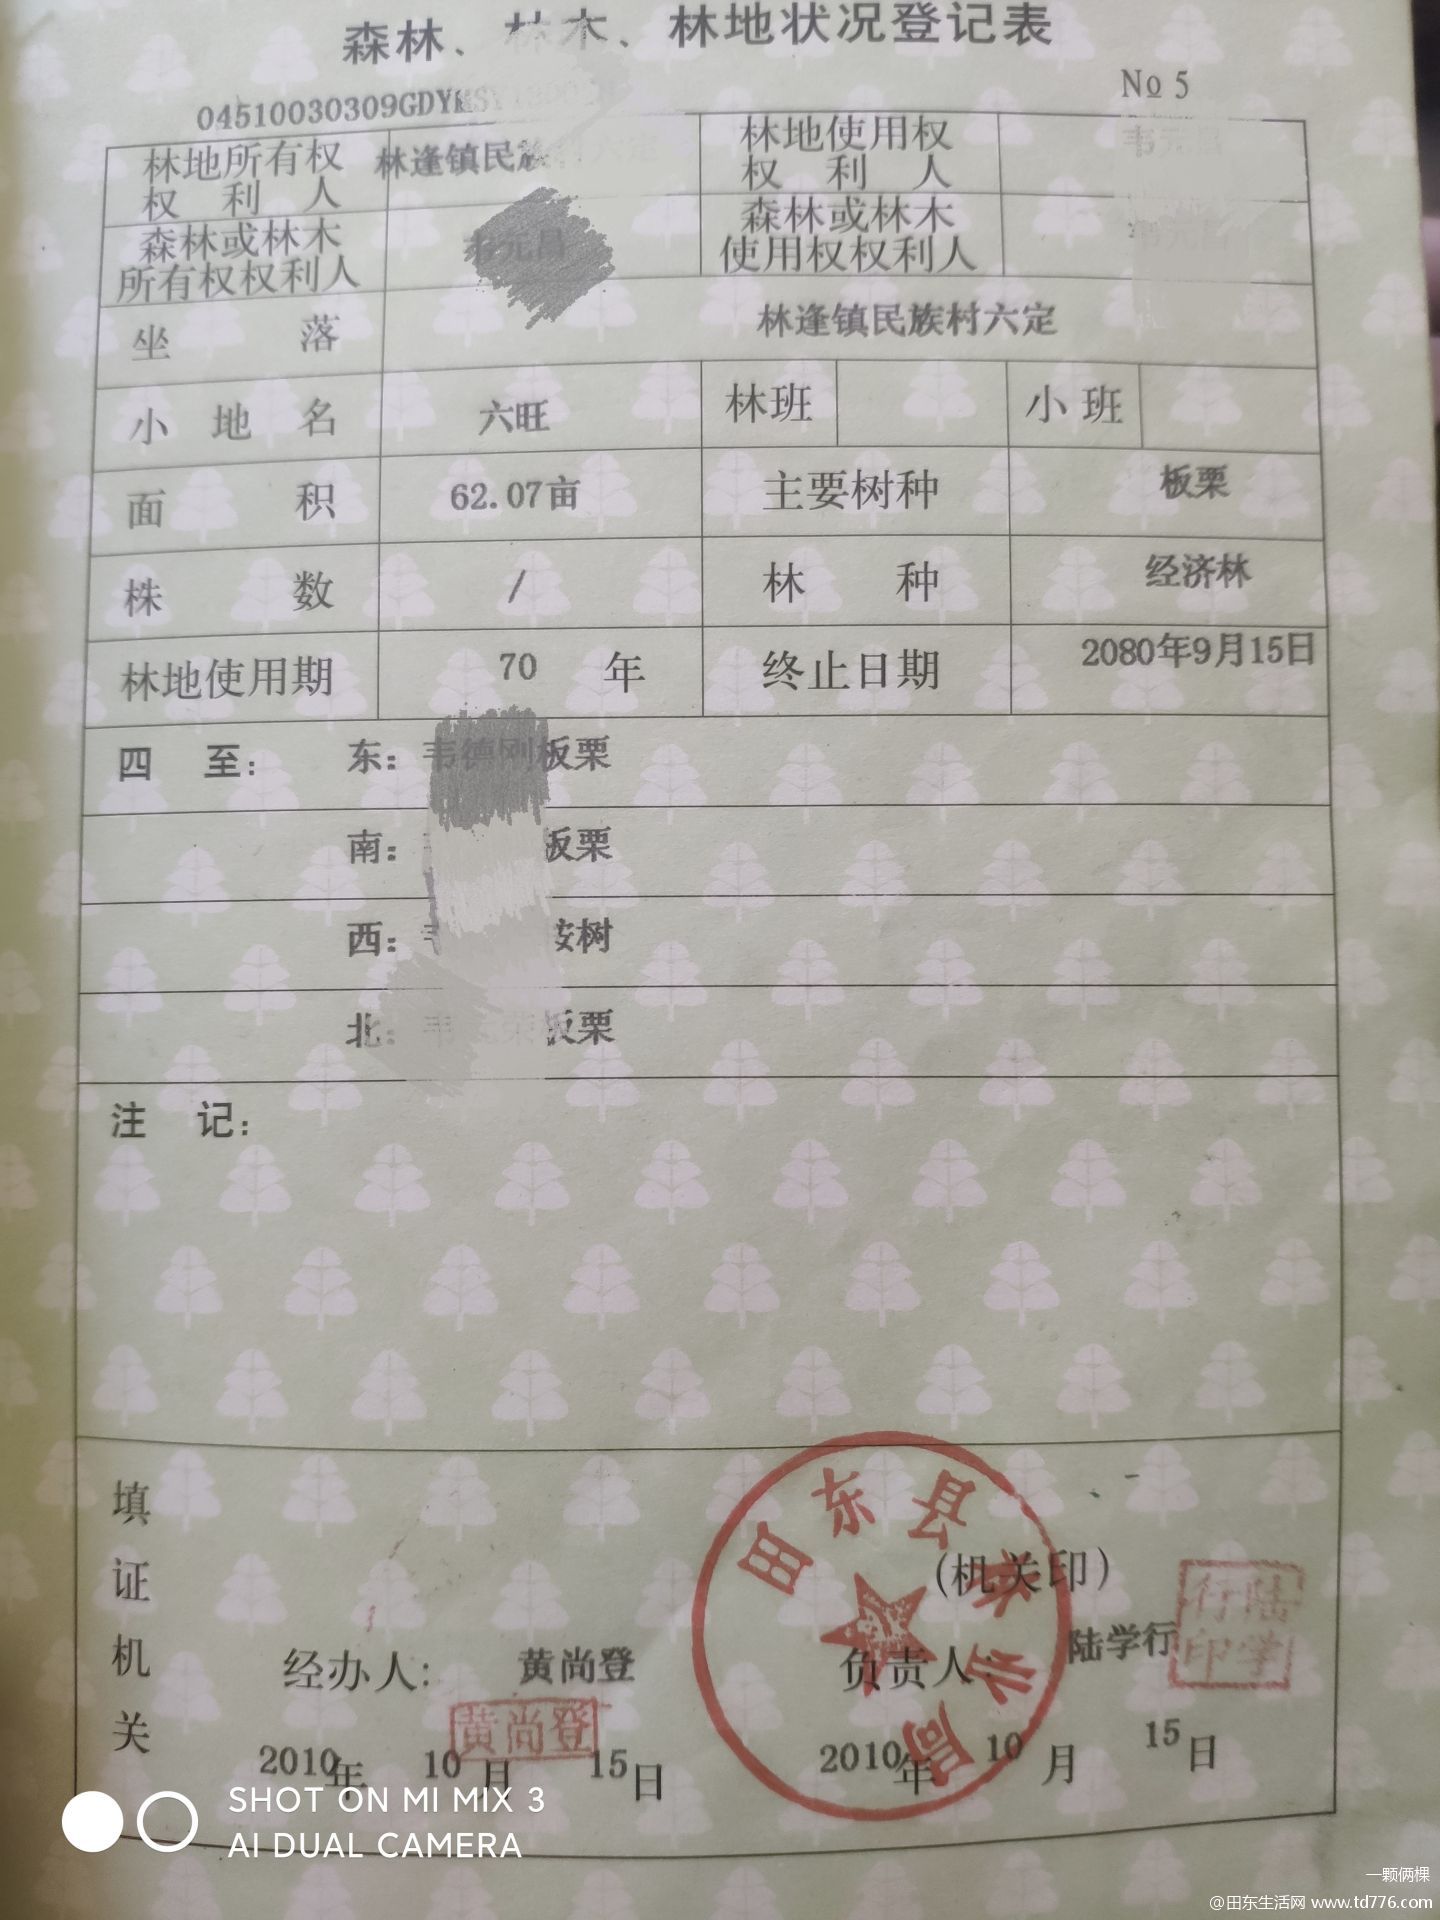 森林、林木、林地状况登记表
04510030309GDYMSY
No 5
林地所有权权利人 林逢镇民族 林地使用权权利人
森林或林木所有权权利人 森林或林木使用权权利人
坐落 林逢镇民族村六定
小地名 六旺 林班 小班
面积 62.07亩 主要树种 板栗
株数 / 林种 经济林
林地使用期 70 年 终止日期 2080年9月15日
四至: 东: 板栗
南: 板栗
西: 桉树
北: 板栗
注记:
填证机关
(机关印)
经办人: 黄尚登 负责人: 陆学行
黄尚登
陆学行印
田东县林业局
2010年 10月 15日 2010年 10月 15日
SHOT ON MI MIX 3
AI DUAL CAMERA
一颗俩棵
@田东生活网 www.td776.com